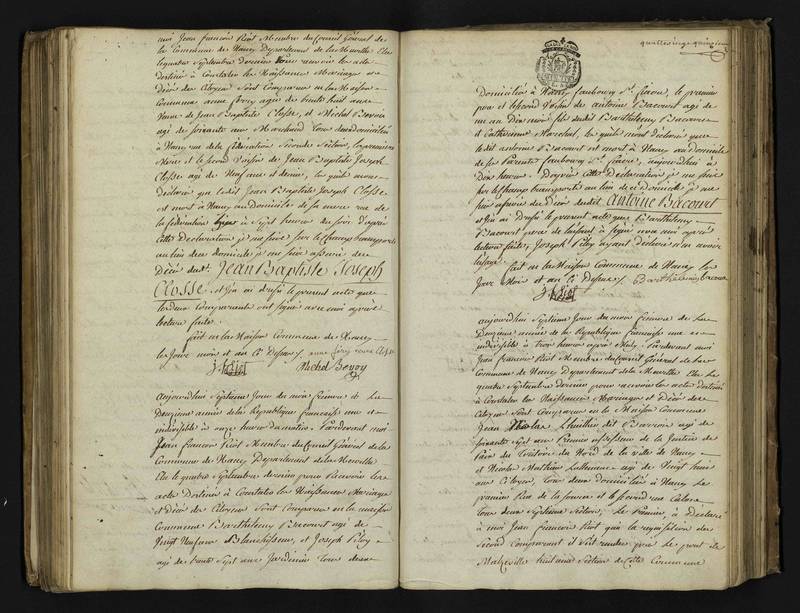 moi Jean François Riot Membre du Conseil Général de
la Commune de Nancy Département de la Meurthe Elu
le quatre Septembre dernier pour recevoir les actes
destinés à Constater les Naissances Mariages et
Décès des Citoyens Sont Comparus en la Maison
Commune anne fory agée de trente huit ans
Veuve de Jean Baptiste Closse, et Michel Bonoy
agé de soixante ans Marchand tous deux domiciliés
à Nancy rue de la fédération Seconde Section, la première
Mère et le second Voisin de Jean Baptiste Joseph
Closse agé de Neuf ans et demi, les quels m'ont
déclaré que ledit Jean Baptiste Joseph Closse
est mort à Nancy au domicile de sa mère rue de
la fédération à Sept heures du soir d'après
cette déclaration je me suis sur le champ transporté
au lieu du domicile je me suis assuré du
Décès dudt. Jean Baptiste Joseph
Closse et j'en ai dressé le présent acte que
les deux Comparants ont signé avec moi après
lecture faite.
fait en la Maison Commune de Nancy
les Jour mois et an Ci dessus
J. f Riot Michel Bonoy
aujourd'hui Septième Jour du mois frimaire de la
Deuxième année de la République française une et
indivisible à onze heures du matin. Pardevant moi
Jean francois Riot Membre du Conseil Général de la
Commune de Nancy Département de la Meurthe
Elu le quatre Septembre dernier pour Recevoir les
actes Destinés à Constater les Naissances Mariages
et Décès des Citoyens Sont Comparus en la maison
Commune Barthelemy Bacourt agé de
Vingt Neuf ans Blanchisseur, et Joseph Piloy
agé de trente Sept ans Jardinier tous deux
quatre vingt quinzieme
Domiciliés à Nancy faubourg St. , le premier
père et le second Voisin de antoine Bacourt agé de
un an Dix mois fils dudit Barthélemy Bacourt
et Catherine Marchal, les quels m'ont déclaré que
ledit antoine Bacourt est mort à Nancy au domicile
de ses Parents faubourg St. , aujourd'hui à
Dix heures. D'après cette Déclaration je me suis
sur le champ transporté au lieu de ce domicile je me
suis assuré du Décès dudit Antoine Bacourt
et j'en ai dressé le présent acte que Barthelemy
Bacourt père de l'enfant a signé avec moi après
lecture faite, Joseph Piloy ayant déclaré n'en avoir
l'usage.
fait en la Maison Commune de Nancy les
Jour Mois et an Ci Dessus Barthélemy Bacour
J. f Riot
aujourd'hui Septième Jour du mois frimaire de la
Deuxième année de la République française une et
indivisible à trois heures après Midy. Pardevant moi
Jean francois Riot Membre du Conseil Général de la
Commune de Nancy Département de la Meurthe Elu le
quatre Septembre dernier pour recevoir les actes destinés
à Constater les Naissances Mariages et Décès des
Citoyens Sont Comparus en la Maison Commune
Jean Nicolas Lhuillier dit agé de
soixante Sept ans Premier assesseur de la Justice de
Paix du Territoire du Nord de la Ville de Nancy
et Nicolas Mathieu Lallemant agé de Vingt huit
ans Citoyen, tous deux domiciliés à Nancy Le
premier Rue de la Source et le second rue Callot
tous deux Septième Section, Le Premier, a Déclaré
à moi Jean francois Riot qu'à la requisition du
Second Comparant il s'est rendu près le pont de
Malzeville huitième Section de Cette Commune